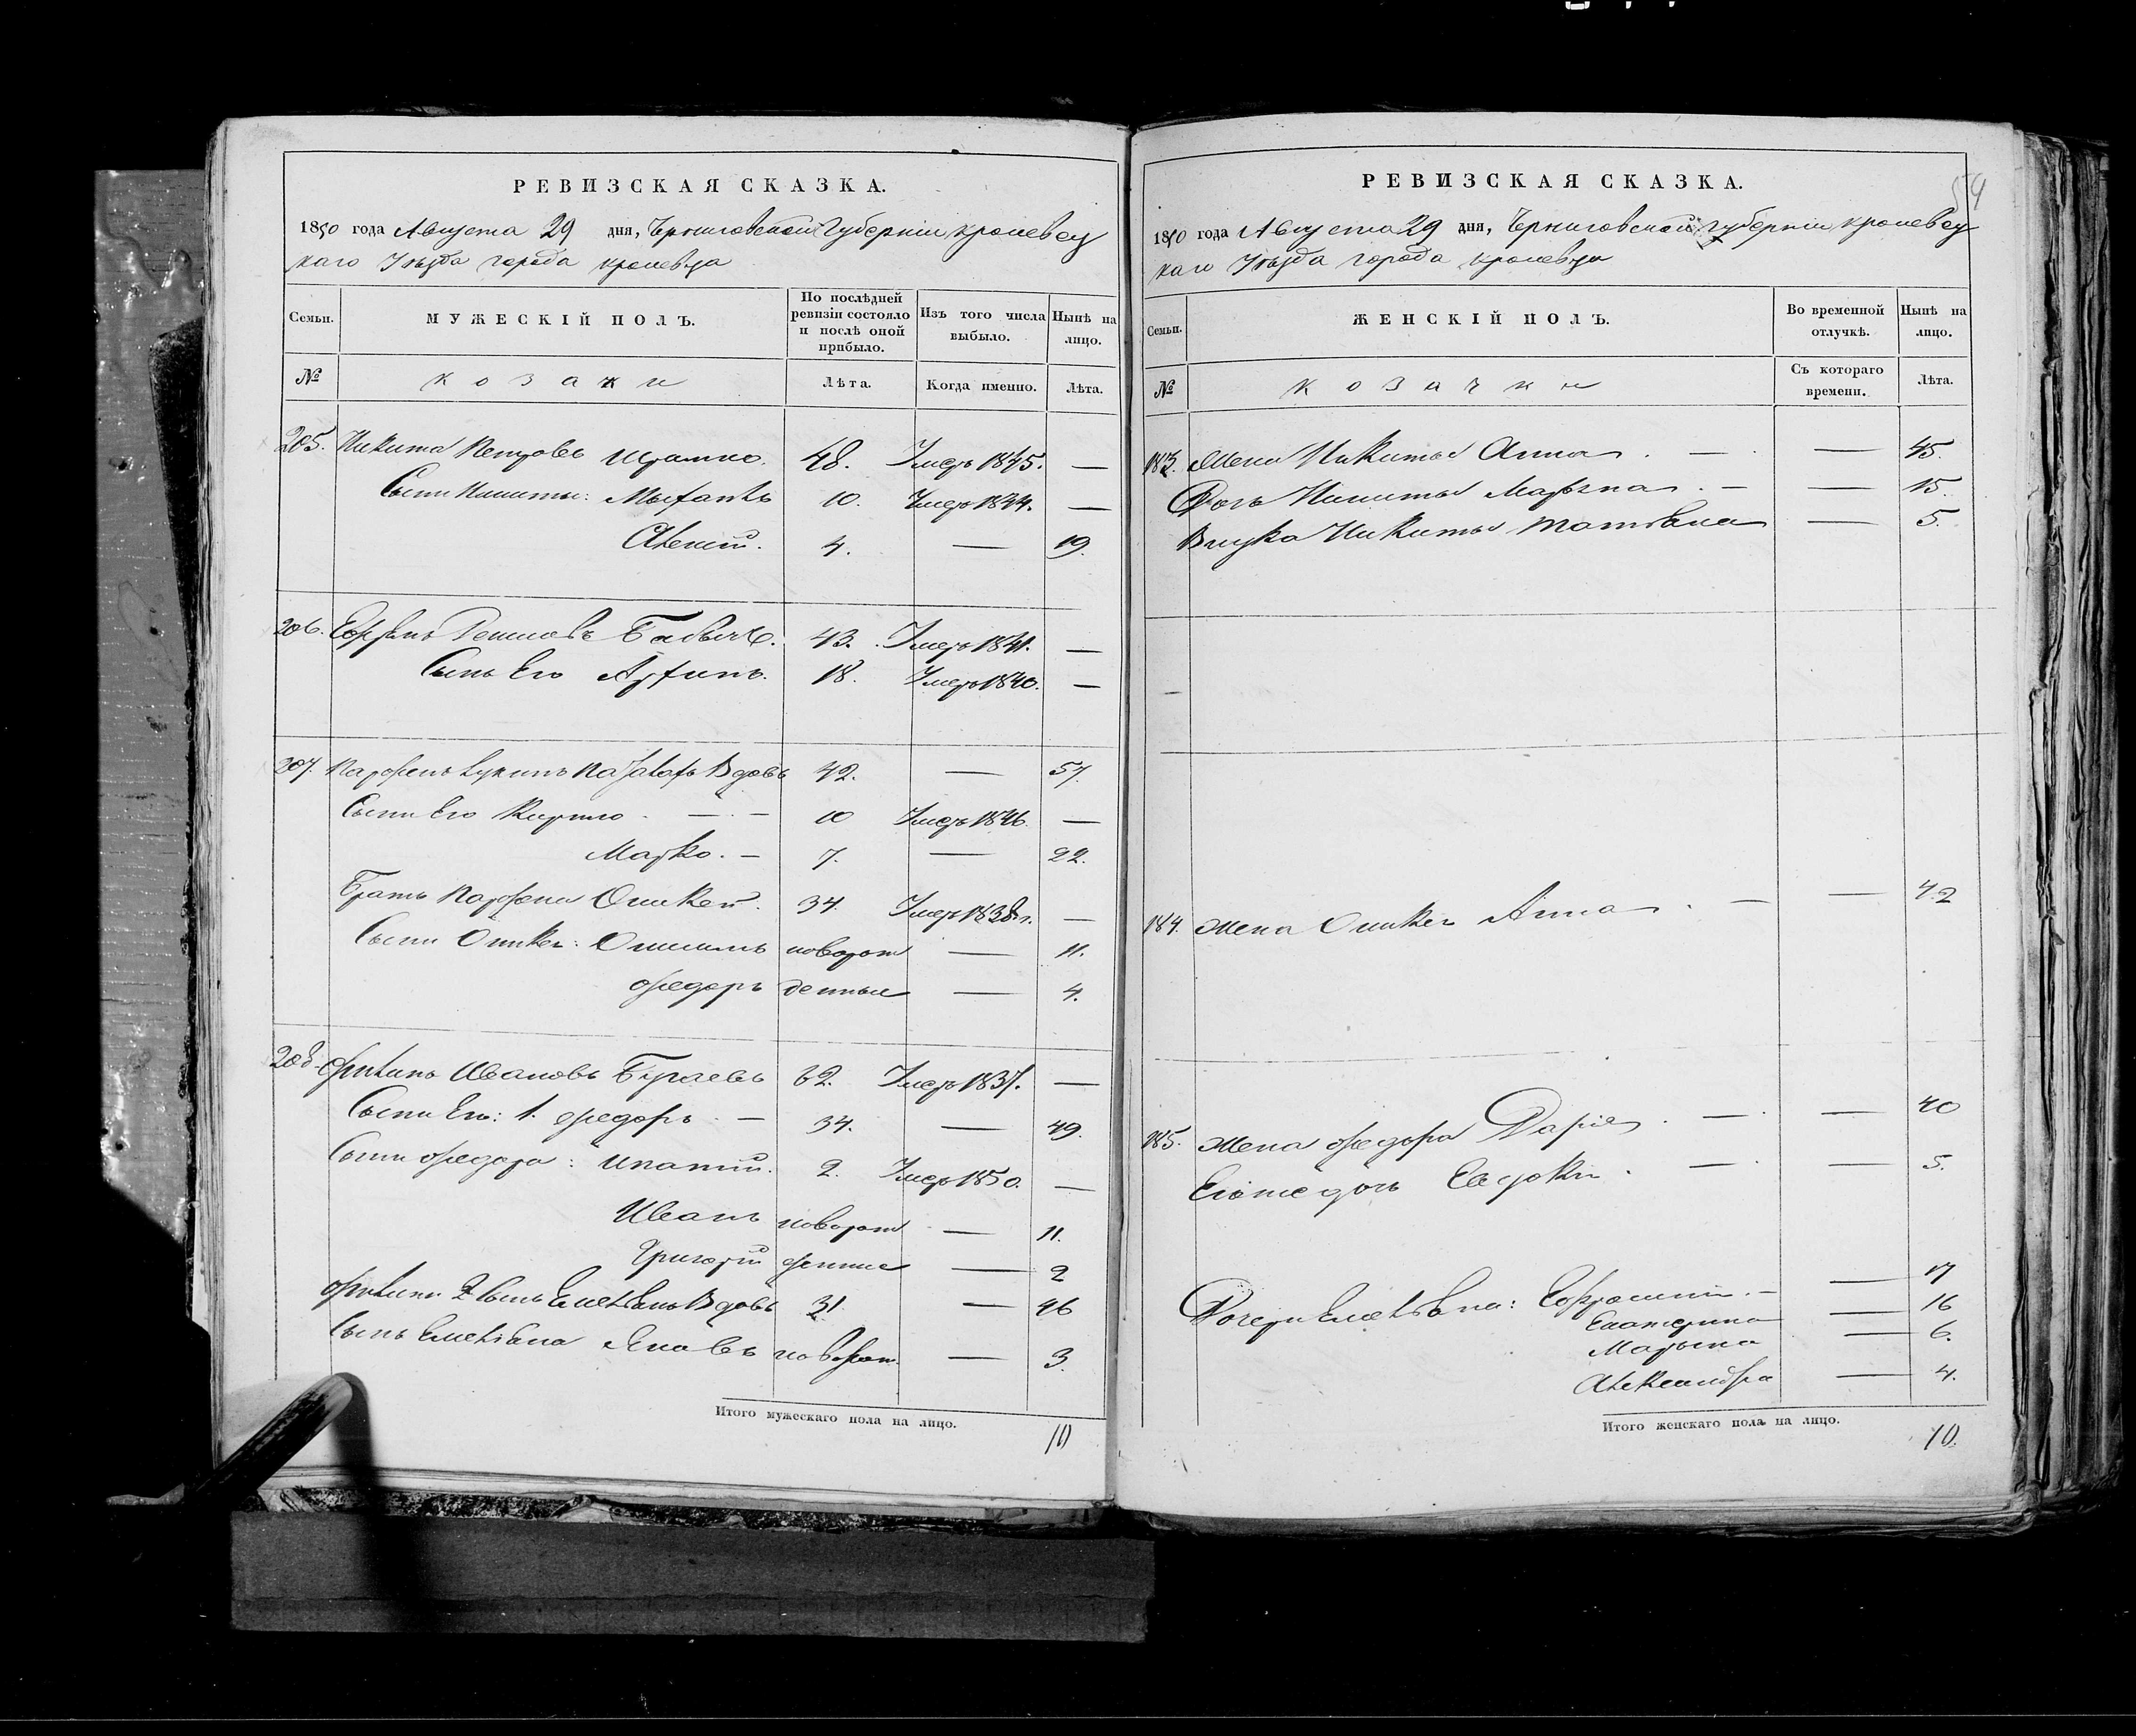 РЕВИЗСКАЯ СКАЗКА.
1850 года Августа 29 дня, Черниговской Губерніи кролевец
каго Уѣзда города кролевца
Семьи.
МУЖЕСКІЙ ПОЛЪ.
По послѣдней ревизіи состояло и послѣ оной прибыло.
Изъ того числа выбыло.
Нынѣ на лицо.
№ козаки Лѣта. Когда именно. Лѣта.
205. Никита Петровъ 48. Умеръ 1845. —
Сыни Никиты: 10. Умеръ 1844. —
Алексій. 4. — 19.
206. Бабичъ. 43. Умеръ 1841. —
Сынъ Его 18. Умеръ 1840. —
207. Парфенъ Лукинъ Вдовъ 42. — 57.
Сыни Его Кирило — — 10 Умеръ 1846. —
Марко. — 7. — 22.
Братъ Парфена 34. Умеръ 1838 г. —
Сыни новорож — 11.
Федоръ денные — 4.
208. Ивановъ 62. Умеръ 1837. —
Сыни Его: 1. Федоръ — 34. — 49.
Сыни Федора: Ипатій. 2. Умеръ 1850. —
Иванъ новорож — 11.
Григорій денные — 2
2 Сынъ Емельянъ Вдовъ 31. — 46
Сынъ Емельяна Яковъ новорож. — 3.
Итого мужескаго пола на лицо. 10
54
РЕВИЗСКАЯ СКАЗКА.
1850 года Августа 29 дня, Черниговской губерніи кролевец
каго Уѣзда города кролевца
Семьи.
ЖЕНСКІЙ ПОЛЪ.
Во временной отлучкѣ.
Нынѣ на лицо.
№ козачки Съ котораго времени. Лѣта.
183. Жена Никиты Анна. — — 45.
Дочь Никиты Марьяна. — — 15.
Внука Никиты Татьяна — 5.
—
184. Жена Анна. — — 42
185. Жена Федора Дарія. — — 40
Егоже дочь Евдокія. — — 5.
Дочери Емельяна: Ефросинія. — — 17
Екатерина — 16
Марьяна — 6.
Александра — 4.
Итого женскаго пола на лицо. 10.